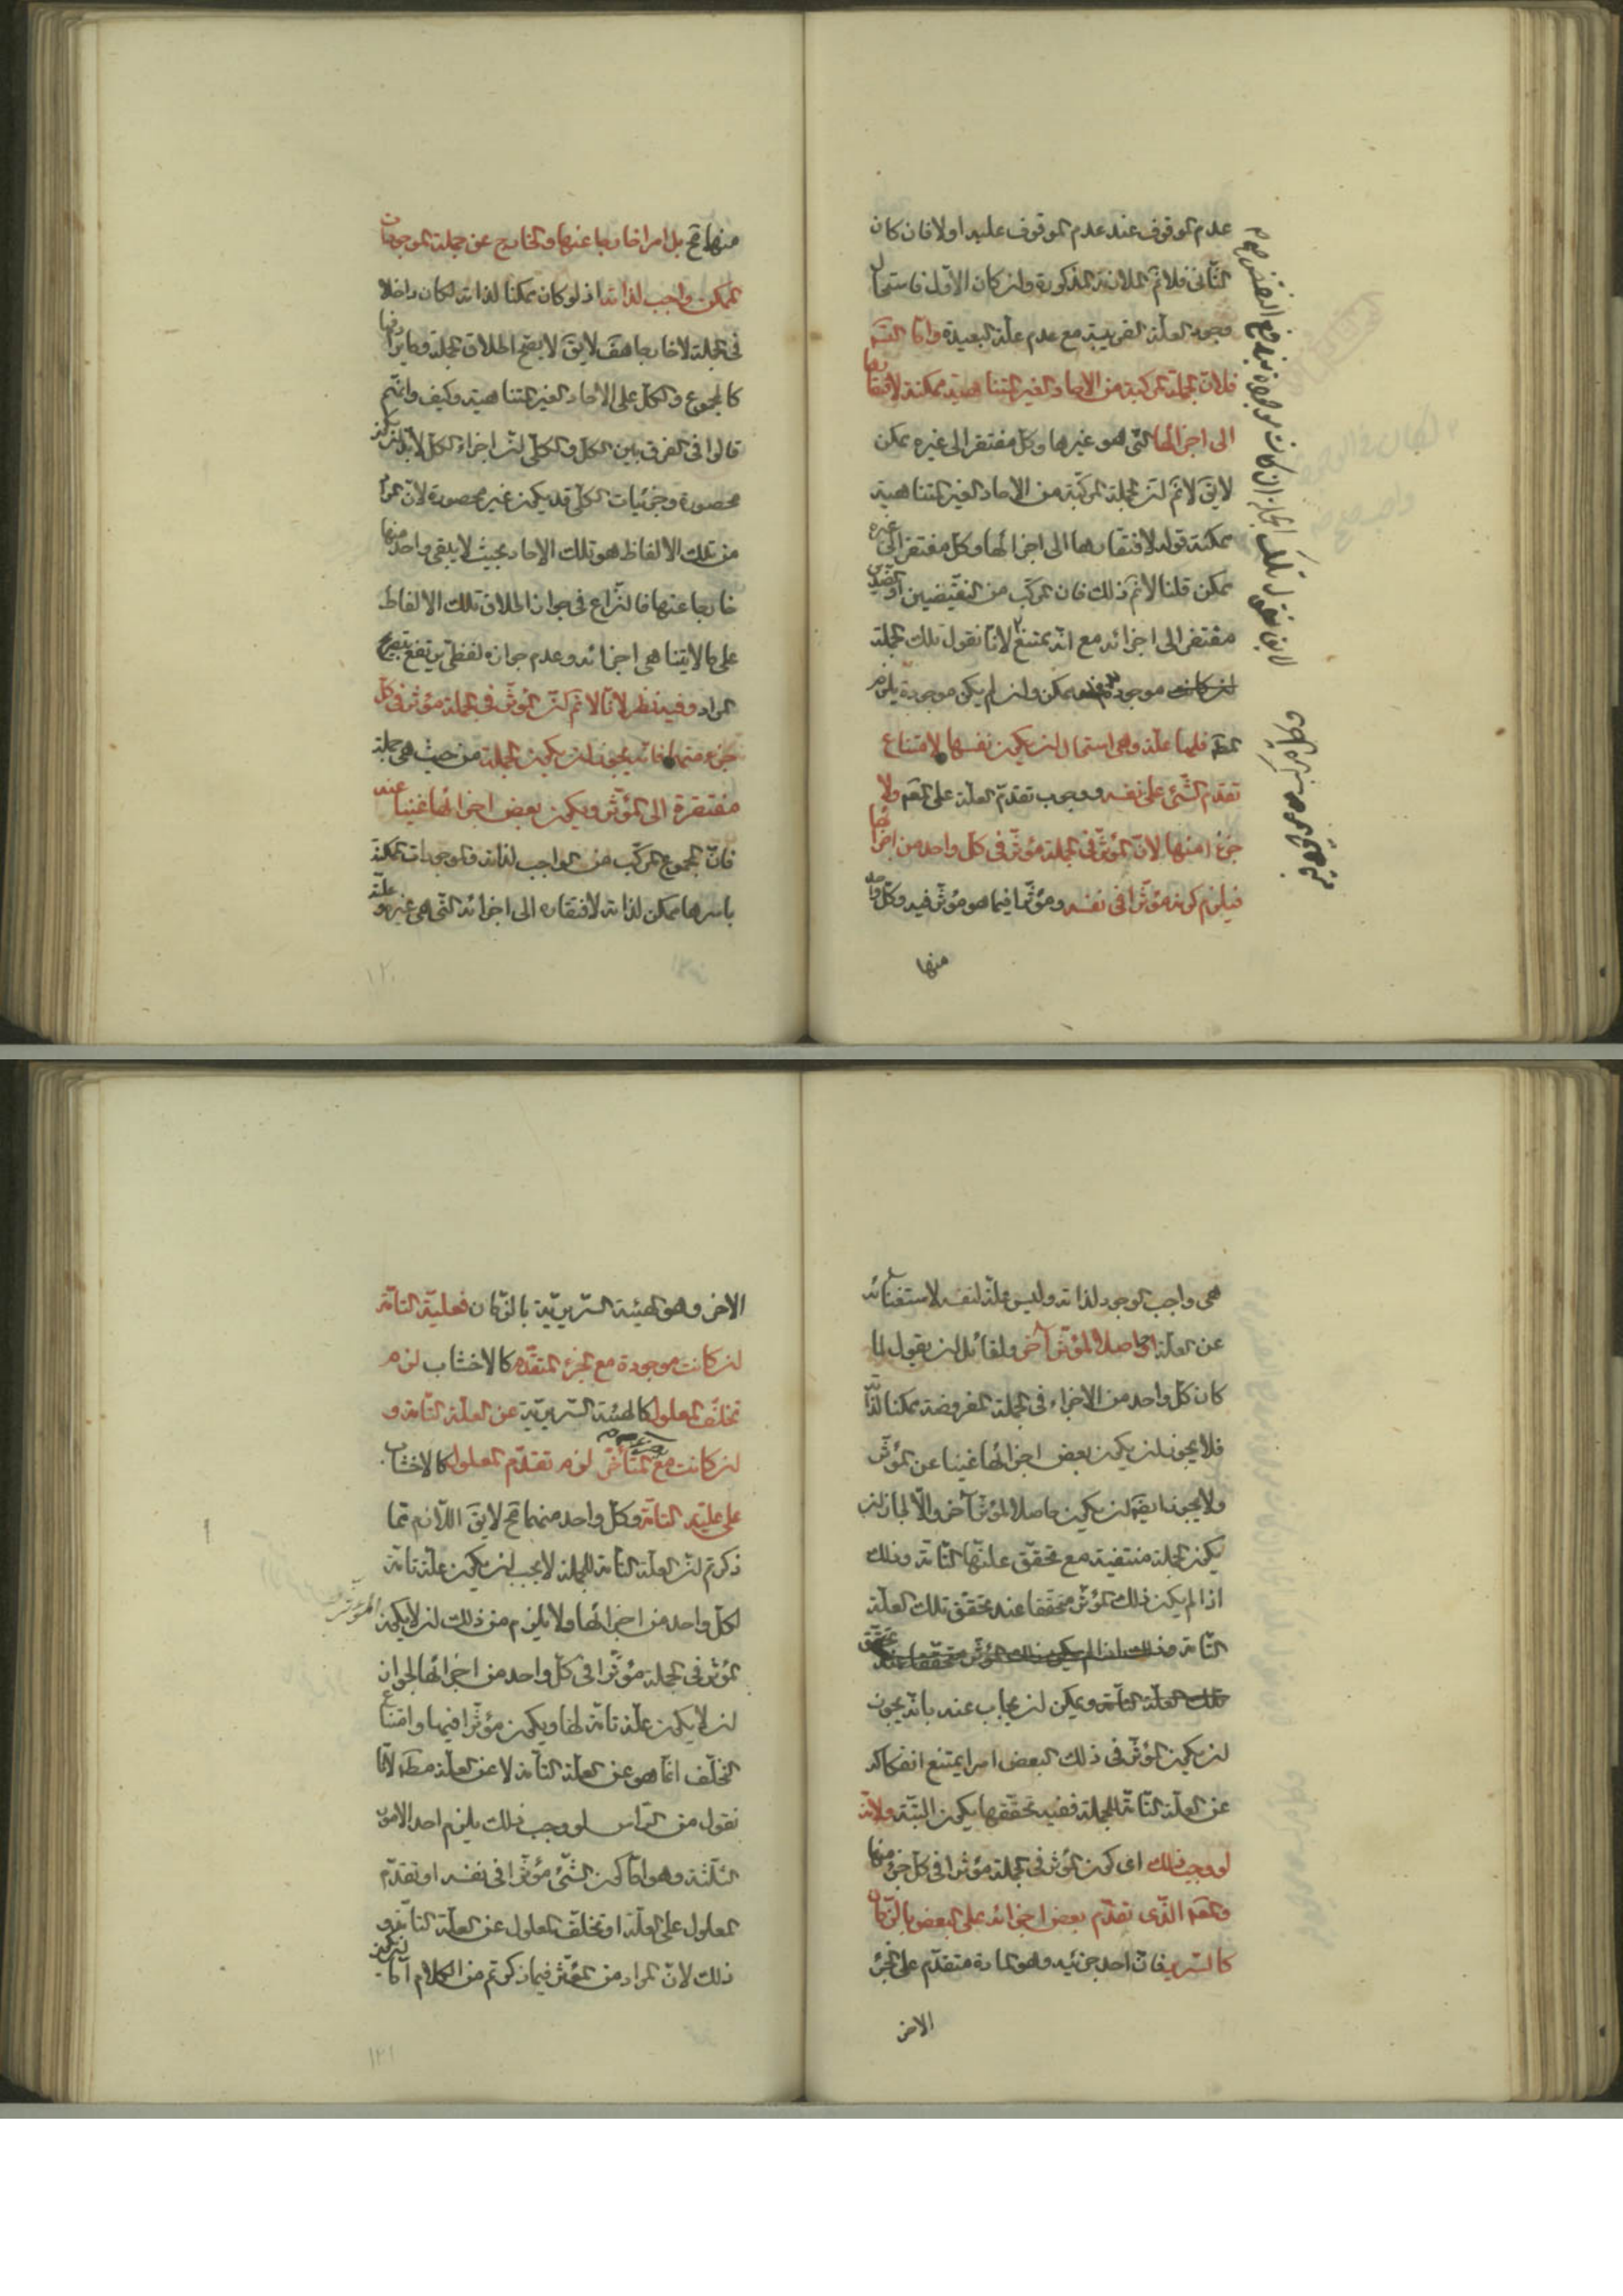 عدم الموقوف عند عدم الموقوف عليه اولا فان كان
الثانى فلا تم الملازمة المذكورة وان كان الاول فاستحال
وجود العلة القريبة مع عدم علة البعيدة واما القسم
فلان الجملة المركبة من الاحاد الغير المتناهية ممكنة لافتقارها
الى اجزائها التى هو غيرها وكل مفتقر الى غيره ممكن
لايق لا نم ان الجملة المركبة من الاحاد الغير المتناهية
ممكنة قوله لافتقارها الى اجزائها وكل مفتقر الى غيره
ممكن قلنا لا نم ذلك فان المركب من النقيضين او الضدين
مفتقر الى اجزائه مع انه ممتنع لانا نقول تلك الجملة
ان كانت موجودة ممكن وان لم يكن موجودة يلزم
المط فلها علة وهى استحال ان يكون نفسها لامتناع
تقدم الشئ على نفسه ووجوب تقدم العلة على المعلول ولا
جزءا منها لان المؤثر فى الجملة مؤثر فى كل واحد من اجزائها
فيلزم كونه مؤثرا فى نفسه ومؤثرا فيما هو مؤثر فيه وكل واحد
منها
منها مح بل امرا خارجا عنها والخارج عن جملة الموجودات
الممكن واجب لذاته اذ لو كان ممكنا لذاته لكان داخلا
فى الجملة لا خارجا هف لايق لا يصح اطلاق الجملة ومايرادفها
كالمجموع والكل على الاحاد الغير المتناهية وكيف وانتم
قالوا فى الفرق بين الكل والكلى ان اجزاء الكل لابد ان يكون
محصورة وجزئيات الكلى قد يكون غير محصورة لان المراد
من تلك الالفاظ هو تلك الاحاد بحيث لا يبقى واحد منها
خارجا عنها فالنزاع فى جواز اطلاق تلك الالفاظ
على ما لا يتناهى اجزائه وعدم جوازه لفظى يرتفع بتفسير
المراد وفيه نظر لانا لا نم ان المؤثر فى الجملة مؤثر فى كل
جزء منها فانه يجوز ان يكون الجملة من حيث هى جملة
مفتقرة الى المؤثر ويكون بعض اجزائها غنيا عنه
فان المجموع المركب من الواجب لذاته والموجودات الممكنة
باسرها ممكن لذاته لافتقاره الى اجزائه التى هى غيره وعلته
هى واجب الوجود لذاته وليس علة لنفسه لاستغنائه
عن العلة او حاصلا لمؤثر آخر ولقائل ان يقول لما
كان كل واحد من الاجزاء فى الجملة المفروضة ممكنا لذاته
فلا يجوز ان يكون بعض اجزائها غنيا عن المؤثر
ولا يجوز ايضا ان يكون حاصلا لمؤثر آخر والا لجاز ان
يكون الجملة منتفية مع تحقق علتها التامة وذلك
اذا لم يكن ذلك المؤثر متحققا عند تحقق تلك العلة
التامة وذلك اذا لم يكن ذلك المؤثر متحققا عند تحقق
تلك العلة التامة ويمكن ان يجاب عنه بانه يجوز
ان يكون المؤثر فى ذلك البعض امرا يمتنع انفكاكه
عن العلة التامة للجملة فعند تحققها يكون البتة ولانه
لو وجب ذلك اى كون المؤثر فى الجملة مؤثرا فى كل جزء منها
الذى تقدم بعض اجزائه على البعض بالزمان
كالسرير فان احد جزئيه وهو المادة متقدم على الجزء
الاخر
الاخر وهو الهيئة السريرية بالزمان فعلية التامة
ان كانت موجودة مع الجزء المتقدم كالاخشاب لزم
تخلف المعلول كالهيئة السريرية عن العلة التامة و
ان كانت مع المتأخر لزم تقدم المعلول كالاخشاب
على علته التامة وكل واحد منهما مح لايق اللازم مما
ذكرتم ان العلة التامة للجملة لا يجب ان يكون علة تامة
لكل واحد من اجزائها ولا يلزم من ذلك ان لا يكون
المؤثر فى الجملة مؤثرا فى كل واحد من اجزائها لجواز
ان لا يكون علة تامة لها ويكون مؤثرا فيها وامتناع
التخلف انما هو عن العلة التامة لا عن العلة مطلقا لانا
نقول من الرأس لو وجب ذلك يلزم احد الامور
الثلثة وهو اما كون الشئ مؤثرا فى نفسه او تقدم
المعلول على العلة او تخلف المعلول عن العلة التامة و
ذلك لان المراد من المؤثر فيما ذكرتم من الكلام اما ان يكون